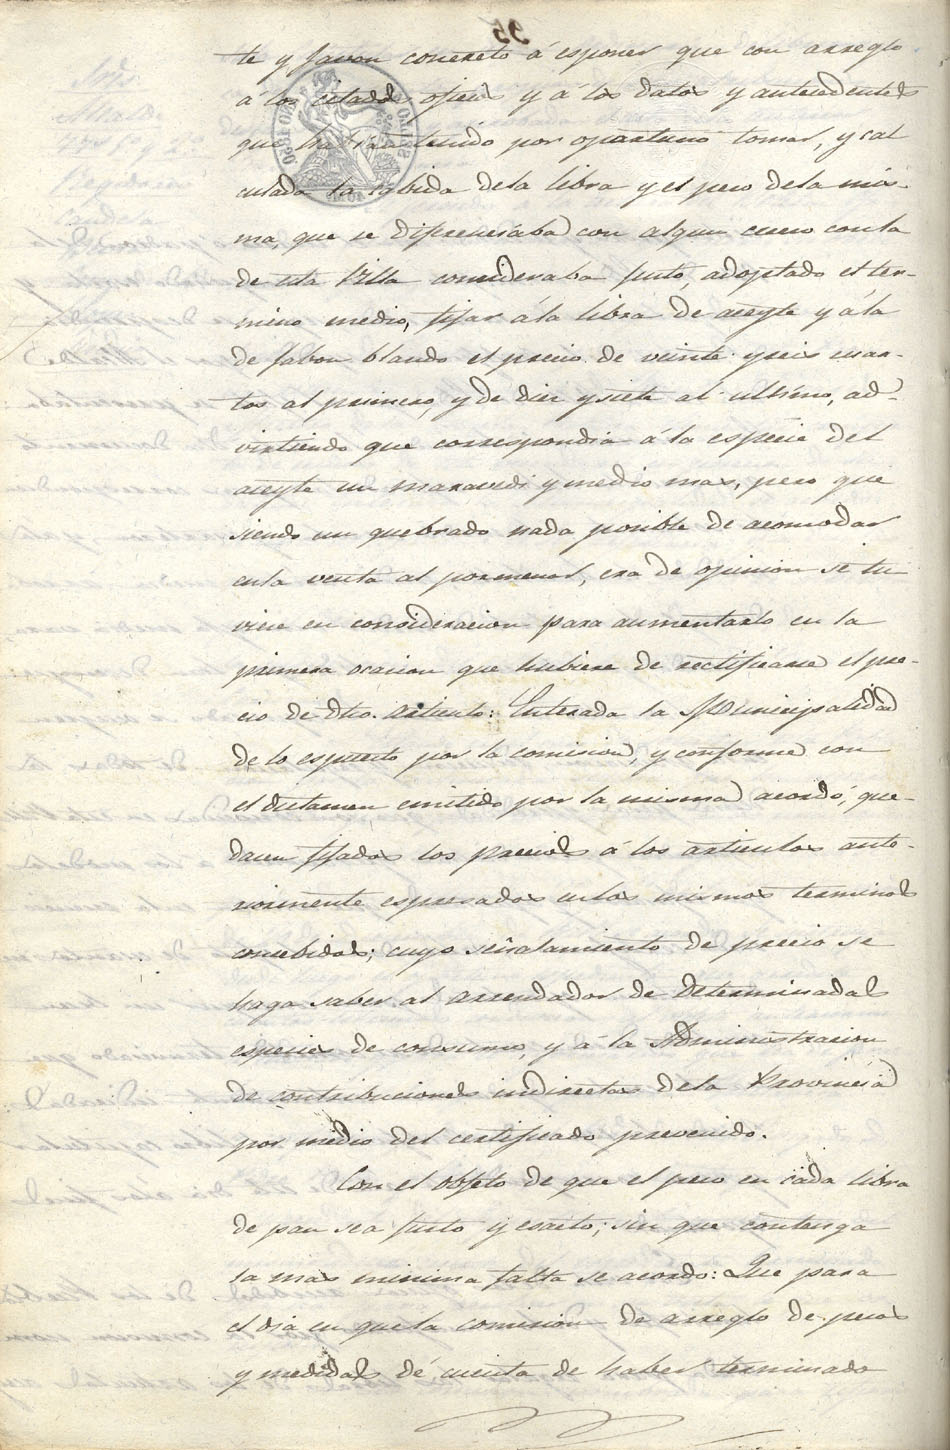 te y Javon concreto á esponer que con arreglo
á los citados oficios y á los datos y antecedentes
que habia tenido por oportuno tomar, y cal
culada la cabida de la libra y el peso de la mis-
ma, que se diferenciaba con algun esceso con la
de esta Villa consideraba justo, adoptado el ter-
mino medio, fijar á la libra de aceyte y á la
de Jabon blando el precio de veinte y seis cuar-
tos al primero, y de diez y siete al ultimo, ad-
virtiendo que correspondia á la especie del
aceyte un maravedi y medio mas, pero que
siendo un quebrado nada posible de acomodar
en la venta al pormenor, era de opinion se tu
viese en consideracion para aumentarlo en la
primera ocasion que hubiese de rectificarse el pre-
cio de dho. articulo: Enterada la Municipalidad
de lo espuesto por la comision, y conforme con
el dictamen emitido por la misma acordó, que-
dasen fijados los precios á los articulos ante-
riormente espresados en los mismos terminos
concebidos; cuyo señalamiento de precio se
haga saber al arrendador de determinadas
especies de consumo, y á la Administracion
de contribuciones indirectas de la Provincia
por medio del certificado prevenido.
Con el objeto de que el peso en cada libra
de pan sea justo y esacto, sin que contenga
la mas minima falta se acordo: Que para
el dia en que la comision de arreglo de pesos
y medidas dé cuenta de haber terminado